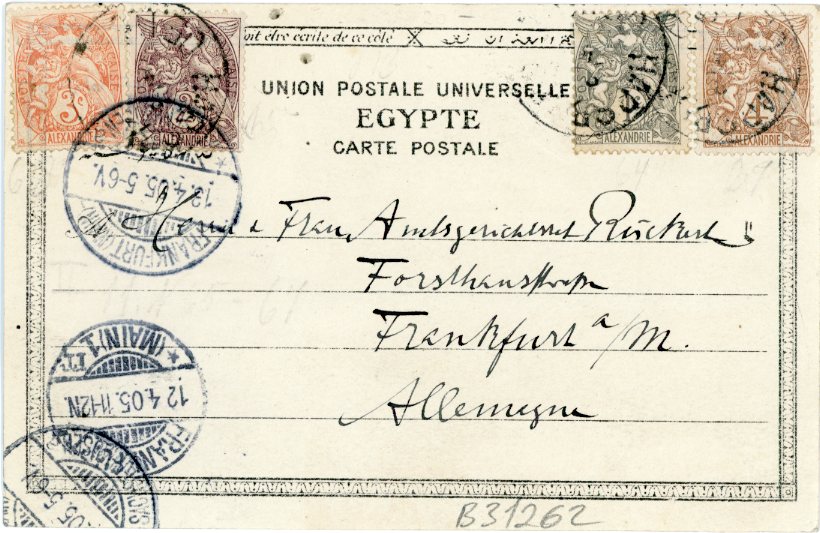 oit être écrite de ce côté
3c ALEXANDRIE
ALEXANDRIE
ALEXANDRIE
ALEXANDRIE
UNION POSTALE UNIVERSELLE
EGYPTE
CARTE POSTALE
Herrn u Frau Amtsgerichtsrat Rückert
Forsthausstrasse
Frankfurt a/M.
Allemagne
FRANKFURT (MAIN)
13.4.05. 5-6V.
FRANKFURT (MAIN) 1.
12.4.05. 11-12N
05. 5-6V
B31262